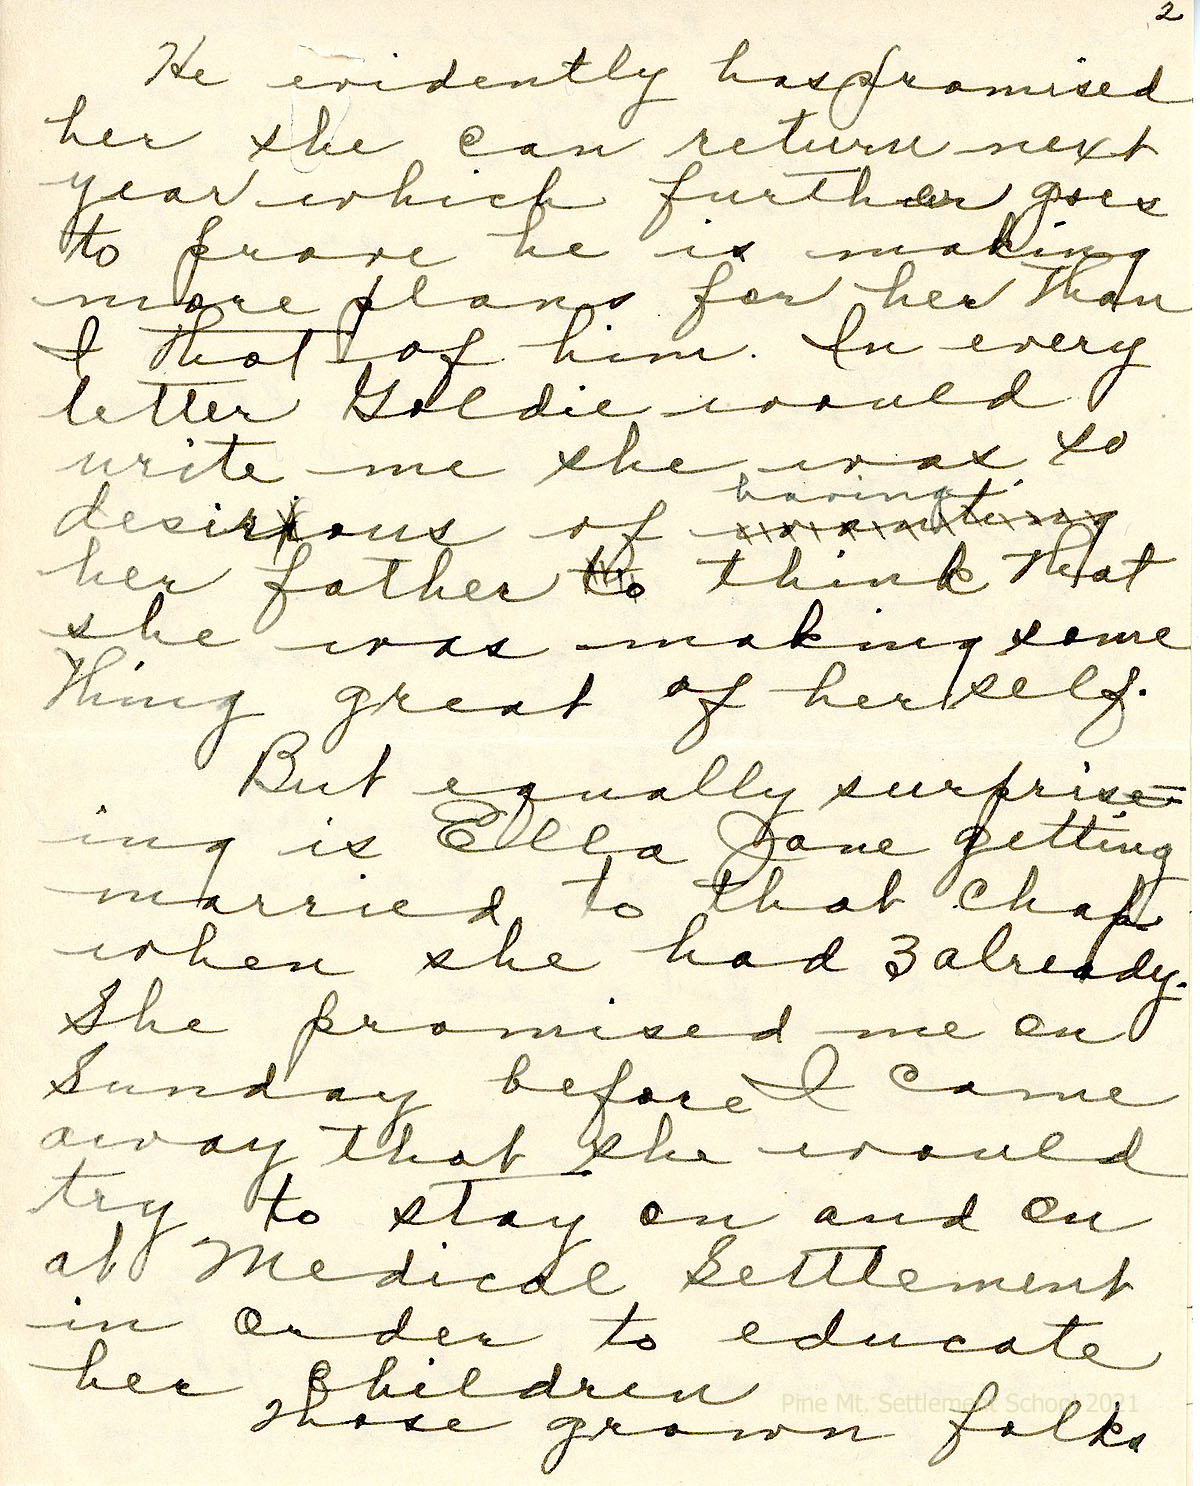 2
He evidently has promised
her she can return next
year which further goes
to prove he is making
more plans for her than
I that of him. In every
letter Goldie would
write me she was so
having
desirious of wanting
her father to think that
she was making some
thing great of herself.
But equally surprise-
ing is Ella Jane getting
married to that chap
when she had 3 already.
She promised me on
Sunday before I came
away that she would
try to stay on and on
at Medical Settlement
in order to educate
her children
Those grown folks
Pine Mt. Settlement School 2021